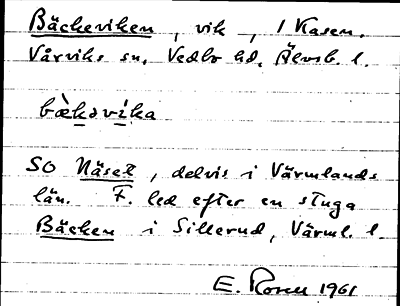 Bäckeviken, vik, 1 Kasen.
Vårviks sn, Vedbo hd, Älvsb. l.
bæ̀kəvi´ka
SO Näset, delvis i Värmlands
län. F. led efter en stuga
Bäcken i Sillerud, Värml. l.
E. Rosen 1961